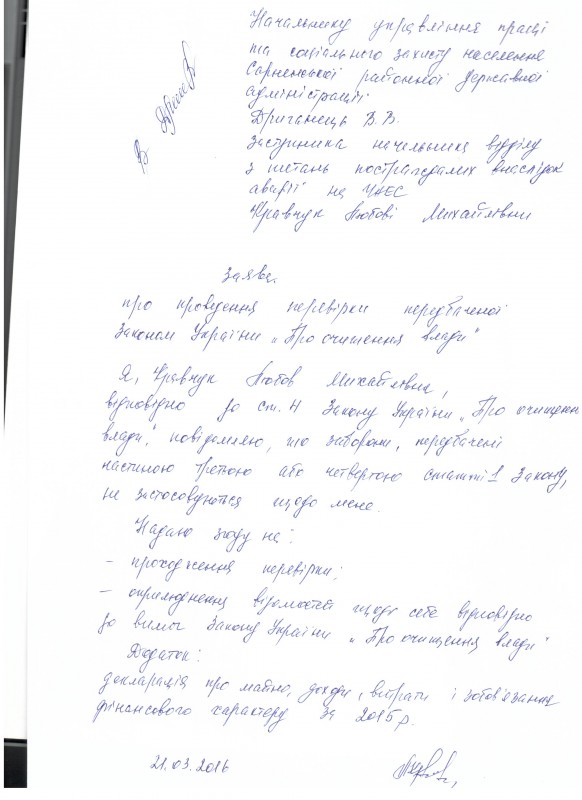 Начальнику управління праці
та соціального захисту населення
Сарненської районної державної
адміністрації
Дриганець В.В.
Заступника начальника відділу
з питань постраждалих внаслідок
аварії на ЧАЕС
Кравчук Любові Михайлівни
Заява
про проведення перевірки передбаченої
Законом України „Про очищення влади"
Я, Кравчук Любов Михайлівна,
відповідно до ст. 4 Закону України „Про очищення
влади", повідомляю, що заборони, передбачені
частиною третьою або четвертою статті 1 Закону,
не застосовуються щодо мене.
Надаю згоду на:
– проходження перевірки;
– оприлюднення відомостей щодо себе відповідно
до вимог Закону України „Про очищення влади"
Додаток:
декларація про майно, доходи, витрати і зобов'язання
фінансового характеру за 2015 р.
21.03.2016